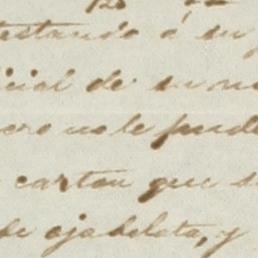 testando á su
icial de su no
ero no le pude
carton que s
de ojadelata, y